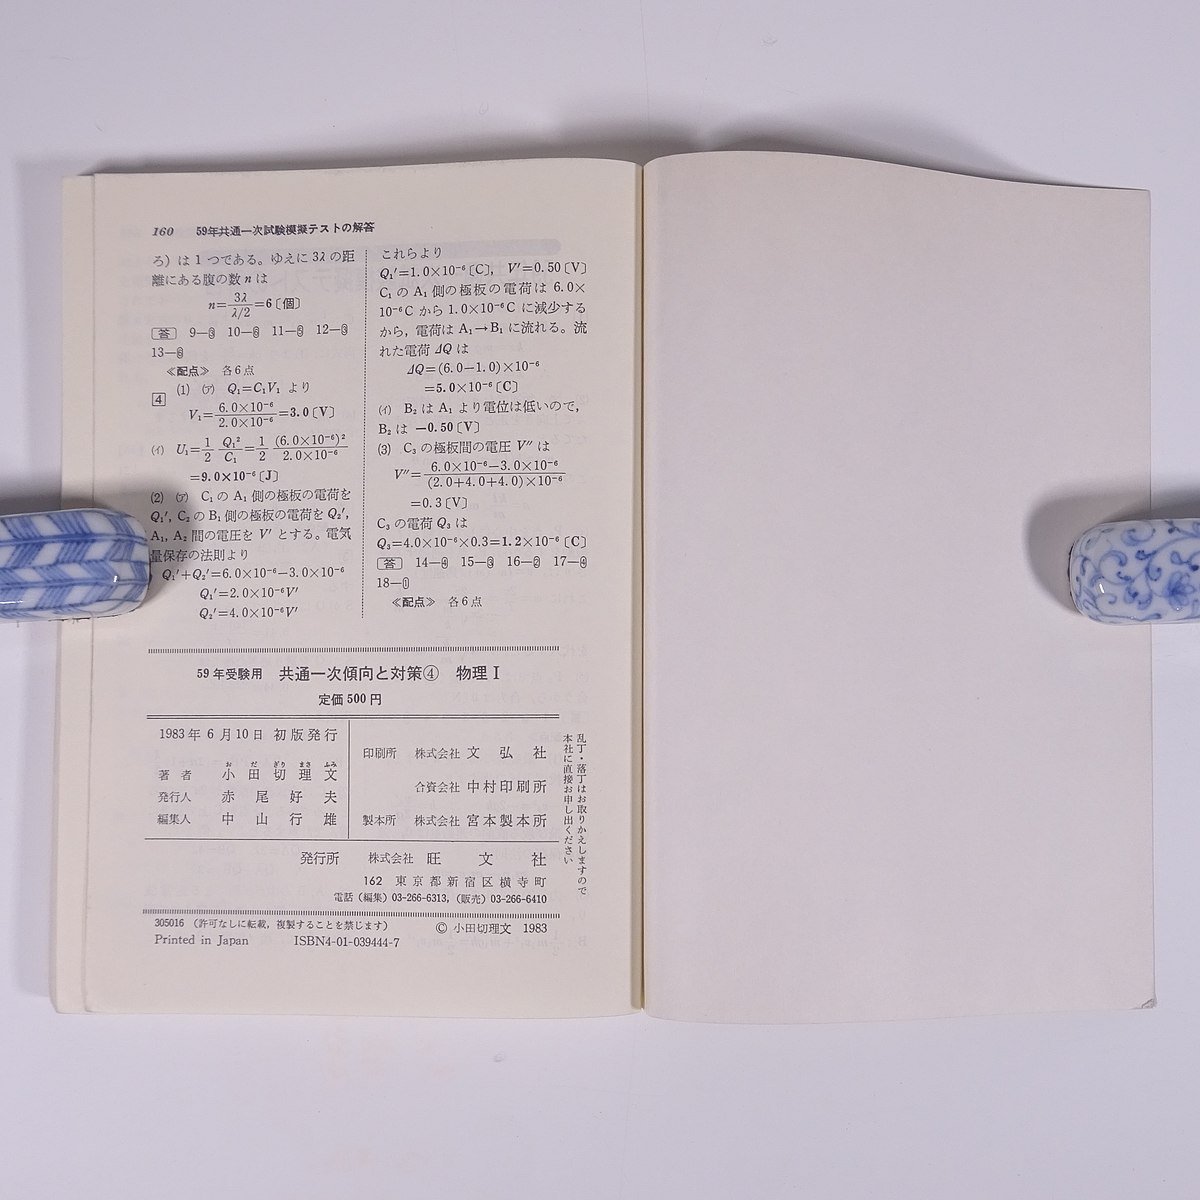 160 59年共通一次試験模擬テストの解答
ろ）は1つである。ゆえに 3λ の距
離にある腹の数 n は
n=3λ/(λ/2)=6〔個〕
答 9—③ 10—⑥ 11—⑥ 12—③
13—⑧
≪配点≫ 各6点
4 (1) (ア) Q₁=C₁V₁ より
V₁=6.0×10⁻⁶/2.0×10⁻⁶=3.0〔V〕
(イ) U₁=1/2 Q₁²/C₁=1/2 (6.0×10⁻⁶)²/2.0×10⁻⁶
=9.0×10⁻⁶〔J〕
(2) (ア) C₁ の A₁ 側の極板の電荷を
Q₁′, C₂ の B₁ 側の極板の電荷を Q₂′,
A₁, A₂ 間の電圧を V′ とする。電気
量保存の法則より
Q₁′+Q₂′=6.0×10⁻⁶−3.0×10⁻⁶
Q₁′=2.0×10⁻⁶V′
Q₂′=4.0×10⁻⁶V′
これらより
Q₁′=1.0×10⁻⁶〔C〕, V′=0.50〔V〕
C₁ の A₁ 側の極板の電荷は 6.0×
10⁻⁶C から 1.0×10⁻⁶C に減少する
から，電荷は A₁→B₁ に流れる。流
れた電荷 ΔQ は
ΔQ=(6.0−1.0)×10⁻⁶
=5.0×10⁻⁶〔C〕
(イ) B₂ は A₁ より電位は低いので，
B₂ は −0.50〔V〕
(3) C₃ の極板間の電圧 V″ は
V″=6.0×10⁻⁶−3.0×10⁻⁶/(2.0+4.0+4.0)×10⁻⁶
=0.3〔V〕
C₃ の電荷 Q₃ は
Q₃=4.0×10⁻⁶×0.3=1.2×10⁻⁶〔C〕
答 14—④ 15—③ 16—② 17—④
18—①
≪配点≫ 各6点
59年受験用 共通一次傾向と対策④ 物理Ⅰ
定価500円
1983年6月10日 初版発行
お だ ぎり まさ ふみ
著者 小田切理文
発行人 赤尾好夫
編集人 中山行雄
印刷所 株式会社 文弘社
合資会社 中村印刷所
製本所 株式会社 宮本製本所
乱丁・落丁はお取りかえしますので
本社に直接お申し出ください
発行所 株式会社 旺文社
162 東京都新宿区横寺町
電話（編集）03-266-6313,（販売）03-266-6410
305016 （許可なしに転載，複製することを禁じます） © 小田切理文 1983
Printed in Japan ISBN4-01-039444-7